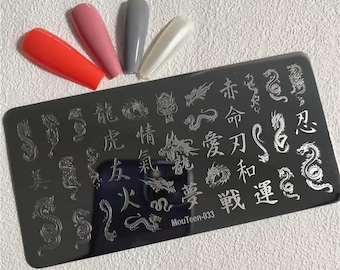 龍 情 愛 赤
虎 氣 刃 命
友 和 忍
美 火 夢 戦 運
MouTeen-033